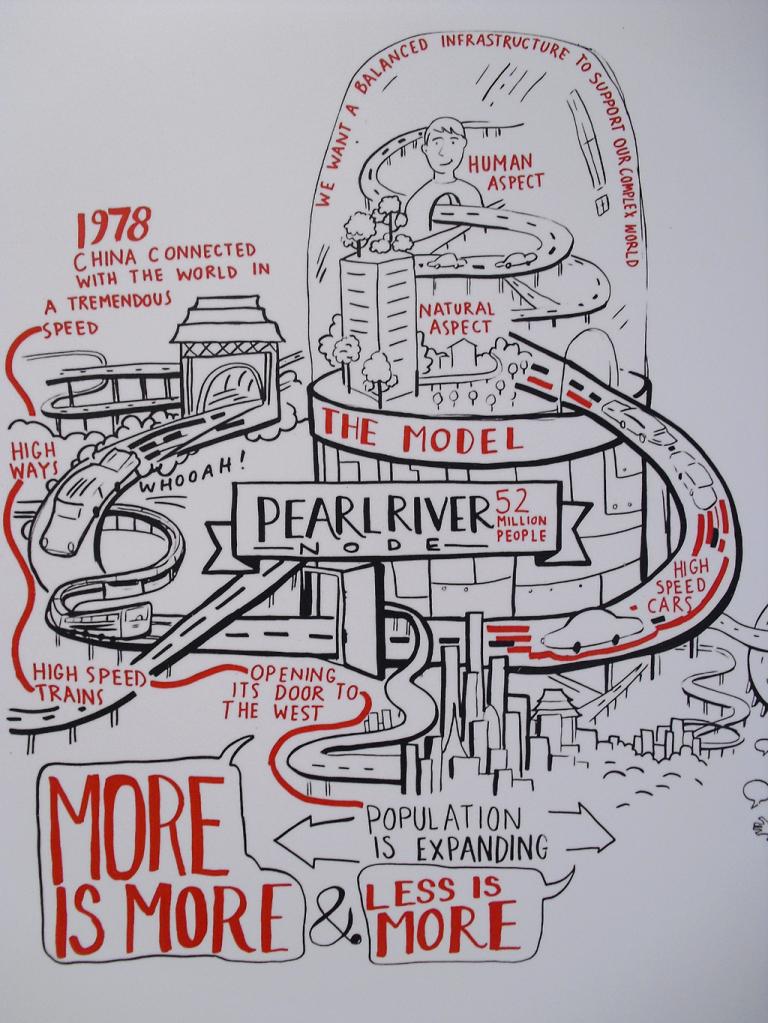 WE WANT A BALANCED INFRASTRUCTURE TO SUPPORT OUR COMPLEX WORLD
HUMAN
ASPECT
1978
CHINA CONNECTED
WITH THE WORLD IN
A TREMENDOUS
SPEED
NATURAL
ASPECT
THE MODEL
HIGH
WAYS
WHOOAH!
PEARL RIVER
NODE
52
MILLION
PEOPLE
HIGH
SPEED
CARS
HIGH SPEED
TRAINS
OPENING
ITS DOOR TO
THE WEST
POPULATION
IS EXPANDING
MORE
IS MORE
&
LESS IS
MORE